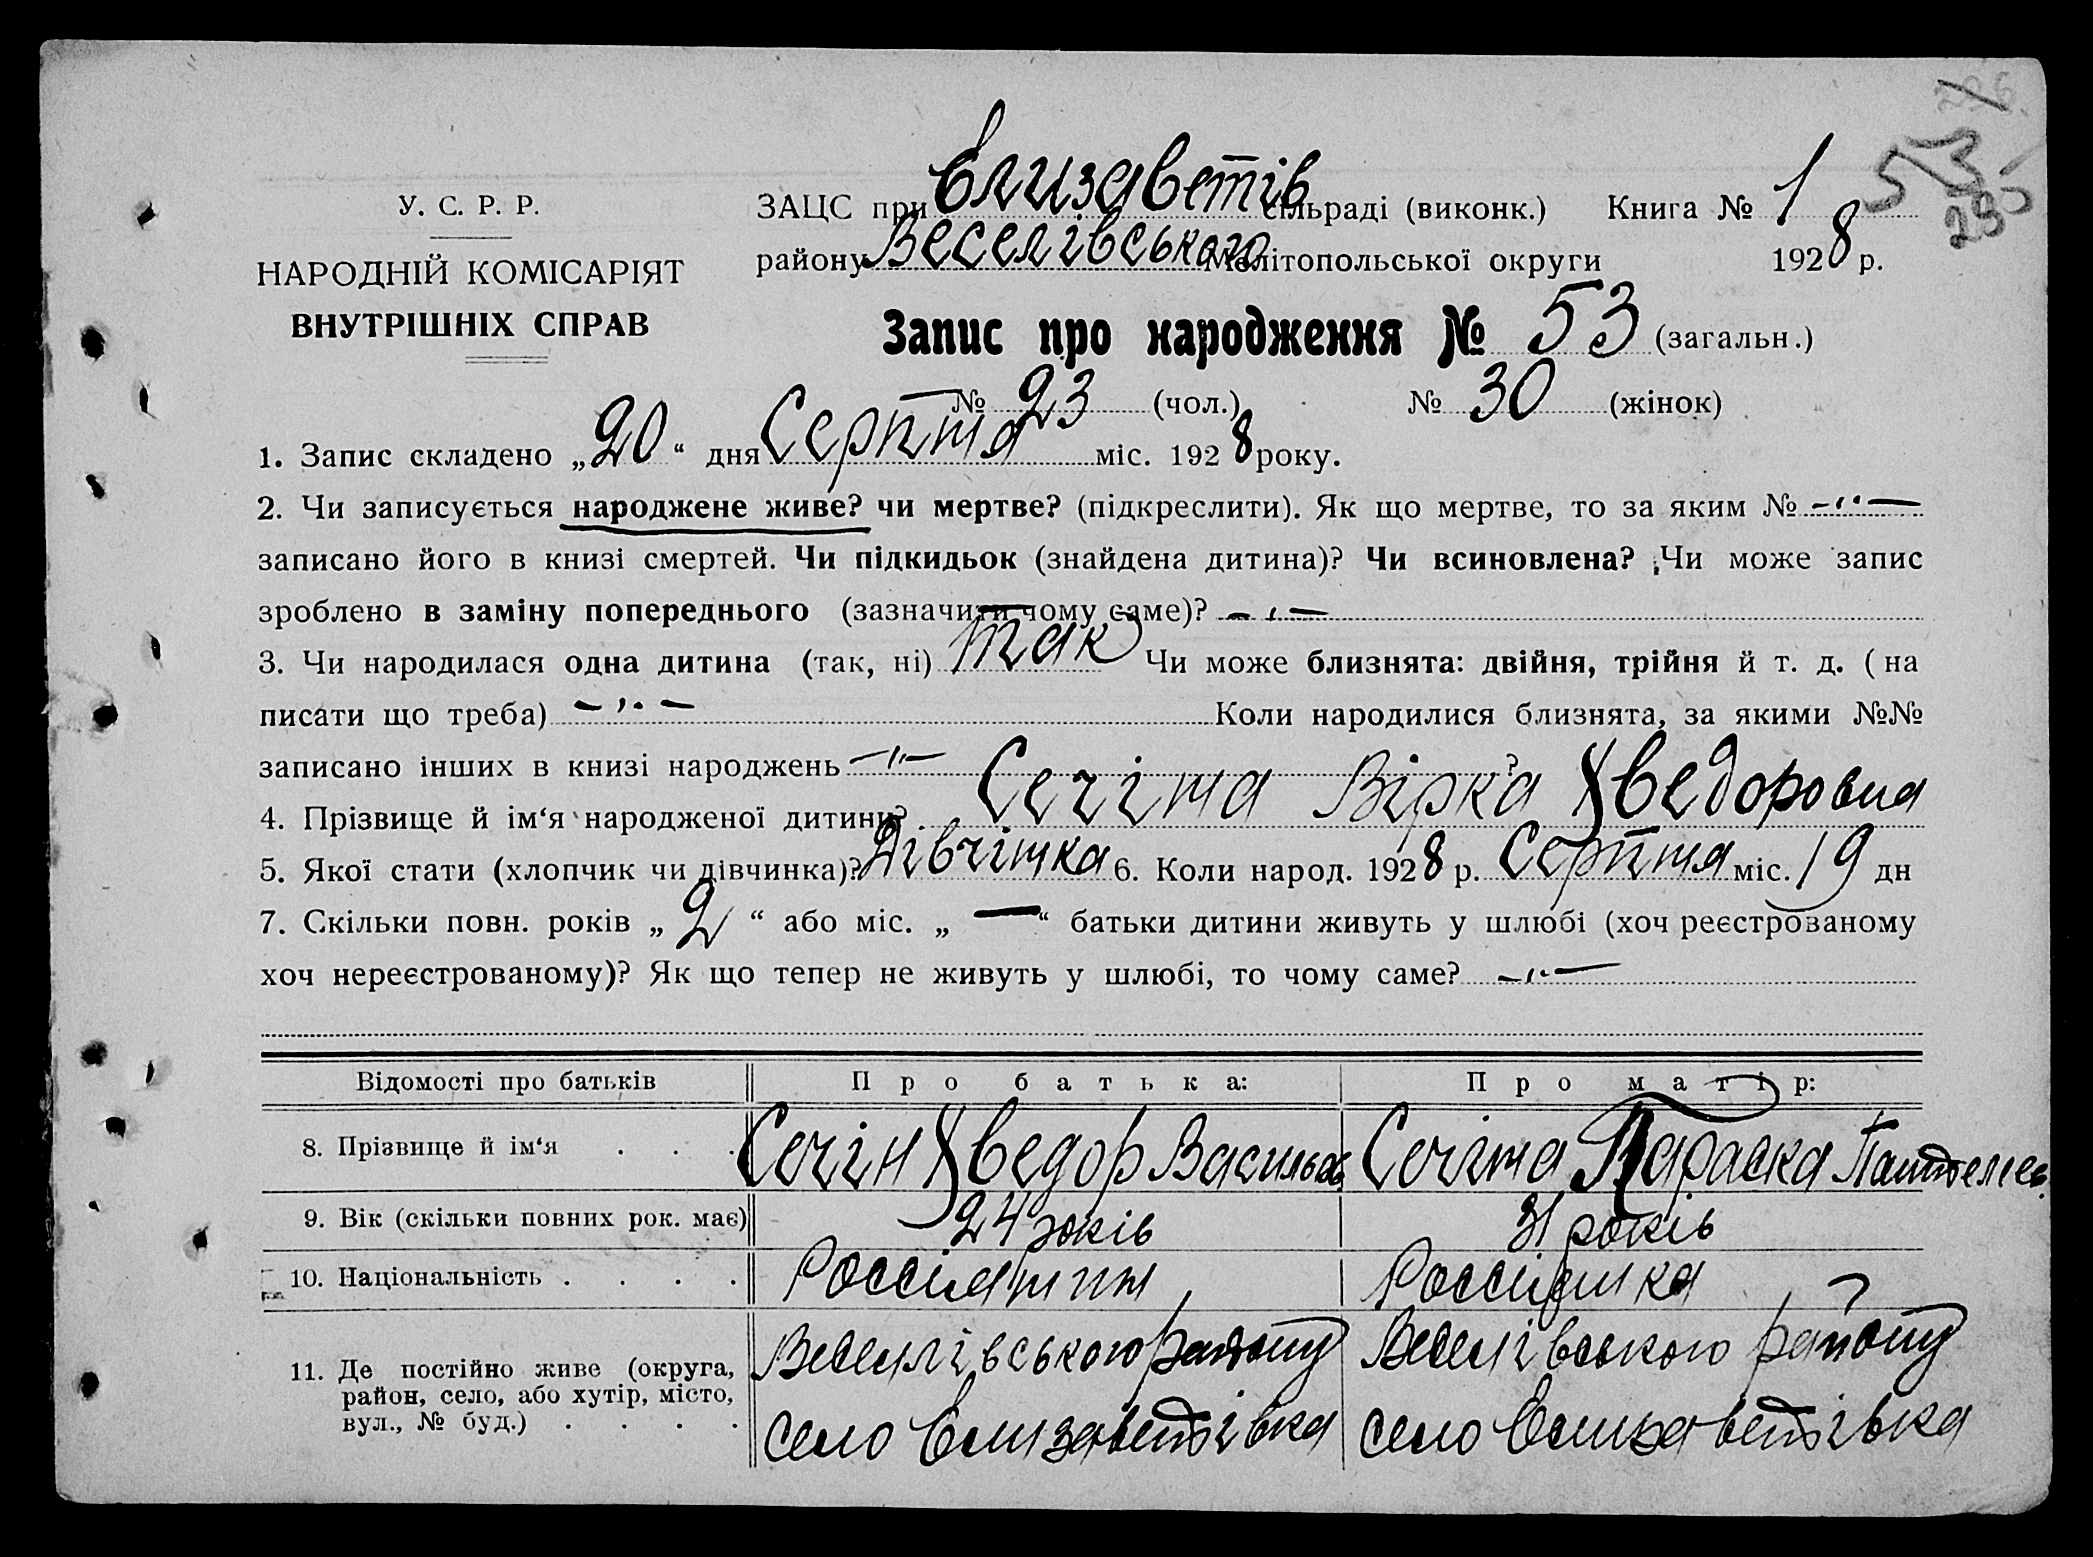 У. С. Р. Р.
НАРОДНІЙ КОМІСАРІЯТ
ВНУТРІШНІХ СПРАВ
ЗАЦС при Єлизаветів сільраді (виконк.) Книга № 1
району Веселівського Мелітопольської округи 1928 р.
Запис про народження № 53 (загальн.)
№ 23 (чол.) № 30 (жінок)
1. Запис складено „20“ дня Серпня міс. 1928 року.
2. Чи записується народжене живе? чи мертве? (підкреслити). Як що мертве, то за яким № -"-
записано його в книзі смертей. Чи підкидьок (знайдена дитина)? Чи всиновлена? Чи може запис
зроблено в заміну попереднього (зазначити чому саме)? -"-
3. Чи народилася одна дитина (так, ні) так Чи може близнята: двійня, трійня й т. д. (на
писати що треба) -"- Коли народилися близнята, за якими №№
записано інших в книзі народжень -"- ?
4. Прізвище й ім‘я народженої дитини? Сечіна Вірка Хведоровна
5. Якої стати (хлопчик чи дівчинка)? Дівчінка 6. Коли народ. 1928 р. Серпня міс. 19 дн
7. Скільки повн. років „2“ або міс. „—“ батьки дитини живуть у шлюбі (хоч реєстрованому
хоч нереєстрованому)? Як що тепер не живуть у шлюбі, то чому саме? -"-
Відомості про батьків Про батька: Про матір:
8. Прізвище й ім‘я . . . Сечін Хведор Васильов Сечіна Параска Пантелеев.
9. Вік (скільки повних рок. має) 24 років 31 років
10. Національність . . . . Россиянин Россиянка
11. Де постійно живе (округа, район, село, або хутір, місто, вул., № буд.) . . . .
Веселівського району Веселівського району
село Єлизаветівка село Єлизаветівка